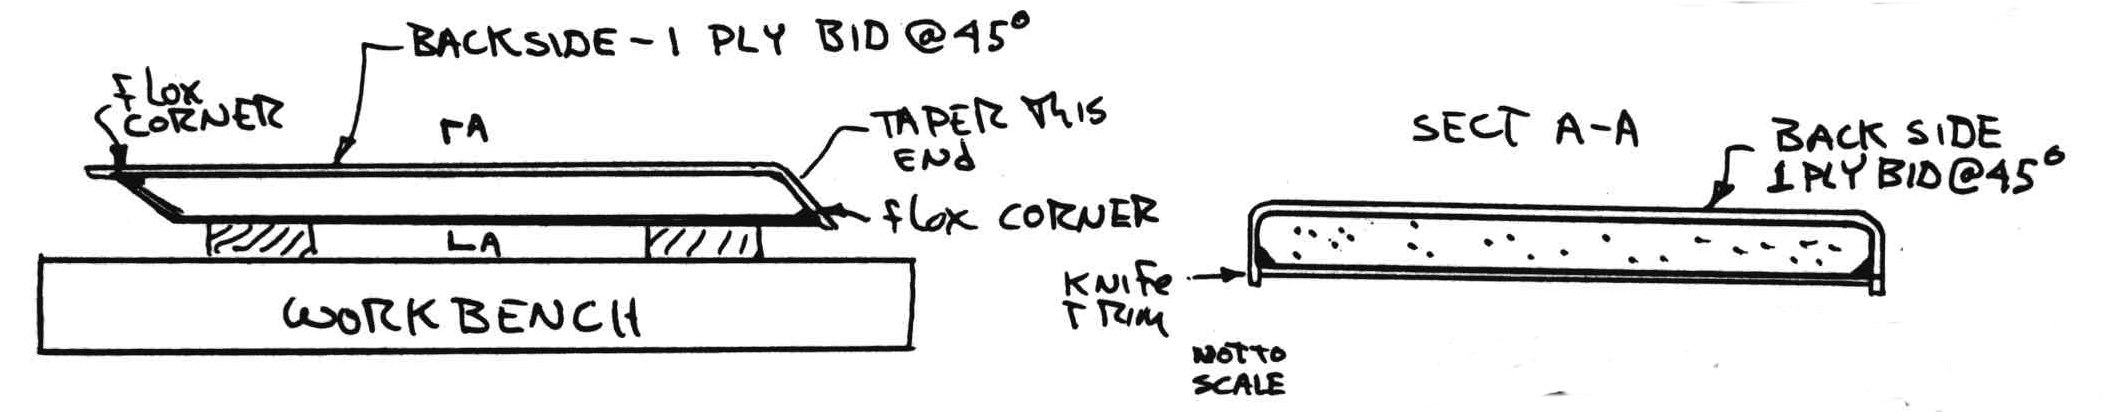 BACKSIDE - 1 PLY BID @ 45°
flox
CORNER
A
TAPER THIS
END
flox CORNER
A
WORKBENCH
SECT A-A
BACK SIDE
1 PLY BID @ 45°
KNIFE
TRIM
NOT TO
SCALE